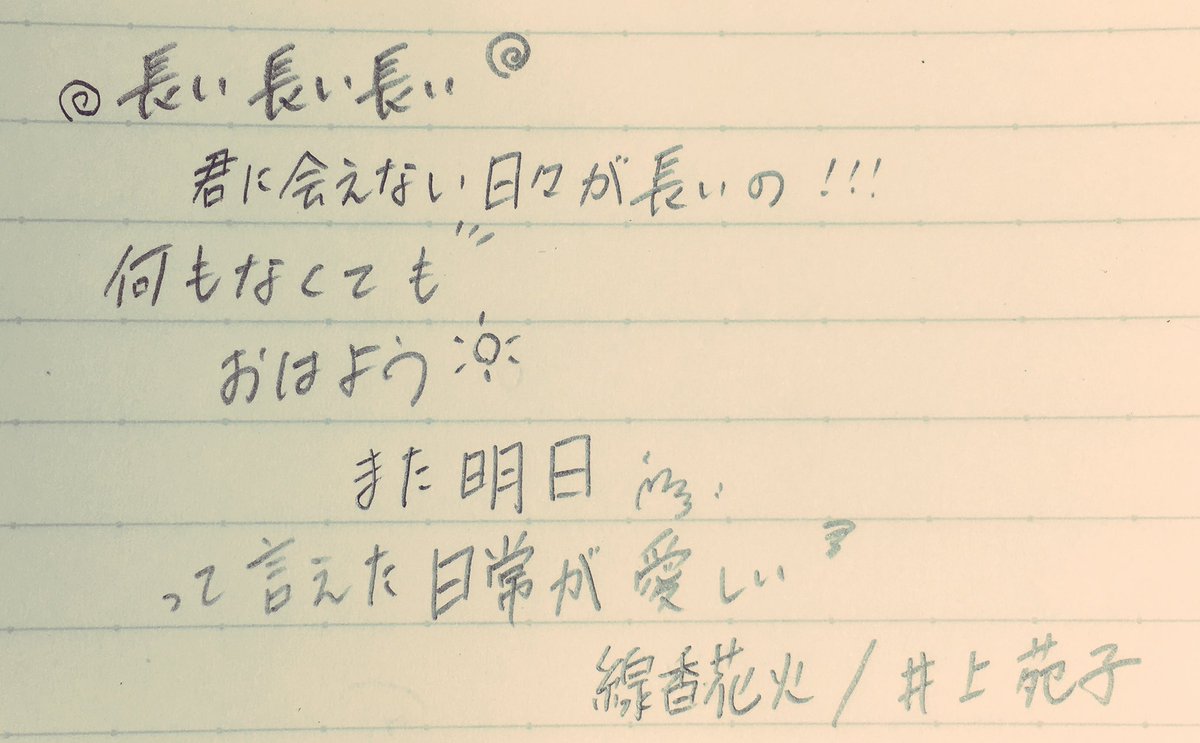 長い長い長い
君に会えない日々が長いの!!!
何もなくても
おはよう
また明日
って言えた日常が愛しい
線香花火/井上苑子